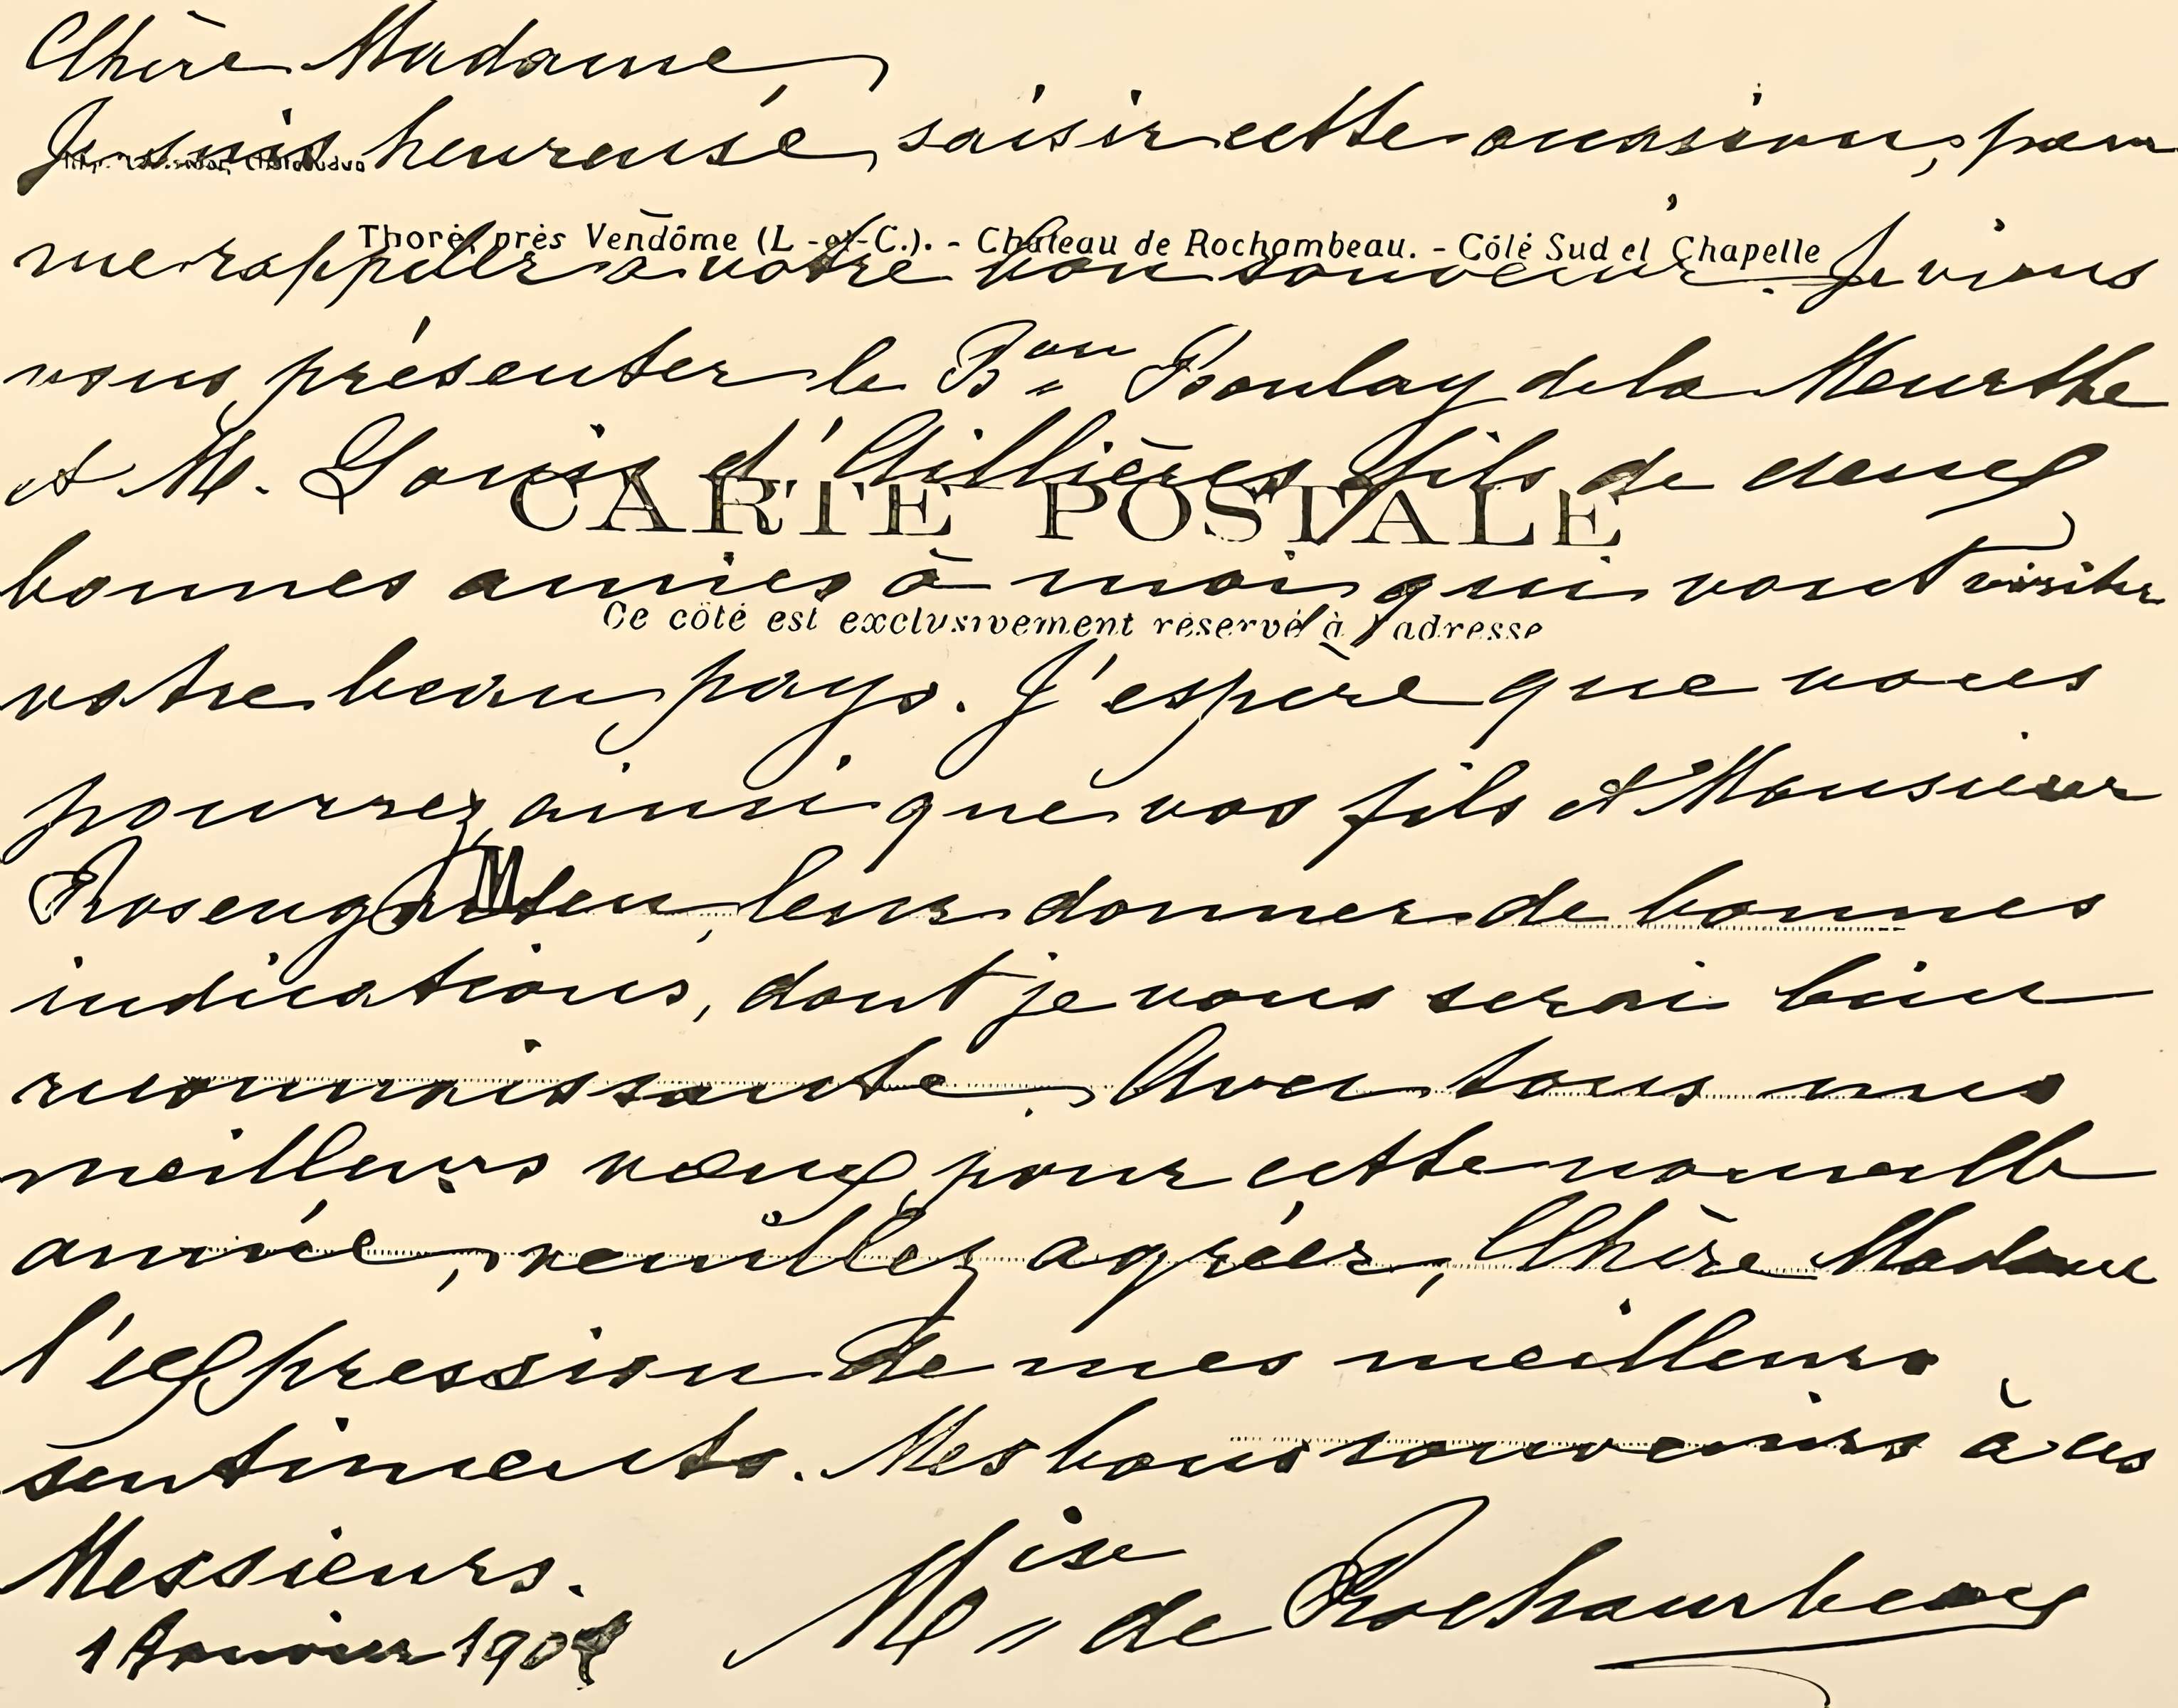 Chère Madame,
Je suis heureuse, saisir cette occasion, pour
Thoré, près Vendôme (L.-et-C.). - Château de Rochambeau. - Côté Sud et Chapelle
me rappeler à votre bon souvenir. Je viens
vous présenter le Bon Boulay de la Meurthe
et M. Louis d'Illières fils de deux
CARTE POSTALE
bonnes amies à moi qui vont visiter
Ce côté est exclusivement réservé à l'adresse
votre beau pays. J'espère que vous
pourrez, ainsi que vos fils et Monsieur
M
Rosengarten, leur donner de bonnes
indications, dont je vous serai bien
reconnaissante. Avec tous mes
meilleurs vœux pour cette nouvelle
année, veuillez agréer, Chère Madame
l'expression de mes meilleurs
sentiments. Mes bons souvenirs à ces
Messieurs.
Mise de Rochambeau
1 Janvier 190